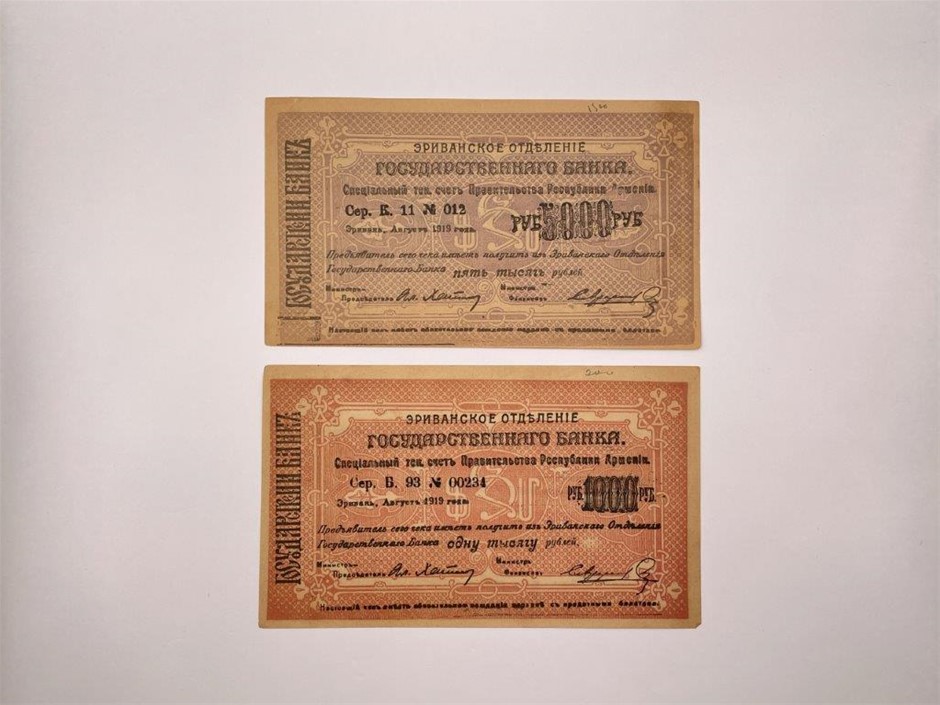 1500
ГОСУДАРСТВЕННЫЙ БАНКЪ
ЭРИВАНСКОЕ ОТДѢЛЕНІЕ
ГОСУДАРСТВЕННАГО БАНКА.
Спеціальный тек. счетъ Правительства Республики Арменіи.
Сер. К. 11 № 012
РУБ 5000 РУБ
Эривань, Августъ 1919 года.
Предъявитель сего чека имѣетъ получить изъ Эриванскаго Отдѣленія
Государственнаго Банка пять тысячъ рублей.
Министръ- Министръ
Предсѣдатель Финансовъ
Настоящій чекъ имѣетъ обязательное хожденіе наравнѣ съ кредитными билетами.
ГОСУДАРСТВЕННЫЙ БАНКЪ
ЭРИВАНСКОЕ ОТДѢЛЕНІЕ
ГОСУДАРСТВЕННАГО БАНКА.
Спеціальный тек. счетъ Правительства Республики Арменіи.
Сер. Б. 93 № 00234
РУБ. 1000 РУБ.
Эривань, Августъ 1919 года.
Предъявитель сего чека имѣетъ получить изъ Эриванскаго Отдѣленія
Государственнаго Банка одну тысячу рублей.
Министръ- Министръ
Предсѣдатель Финансовъ
Настоящій чекъ имѣетъ обязательное хожденіе наравнѣ съ кредитными билетами.